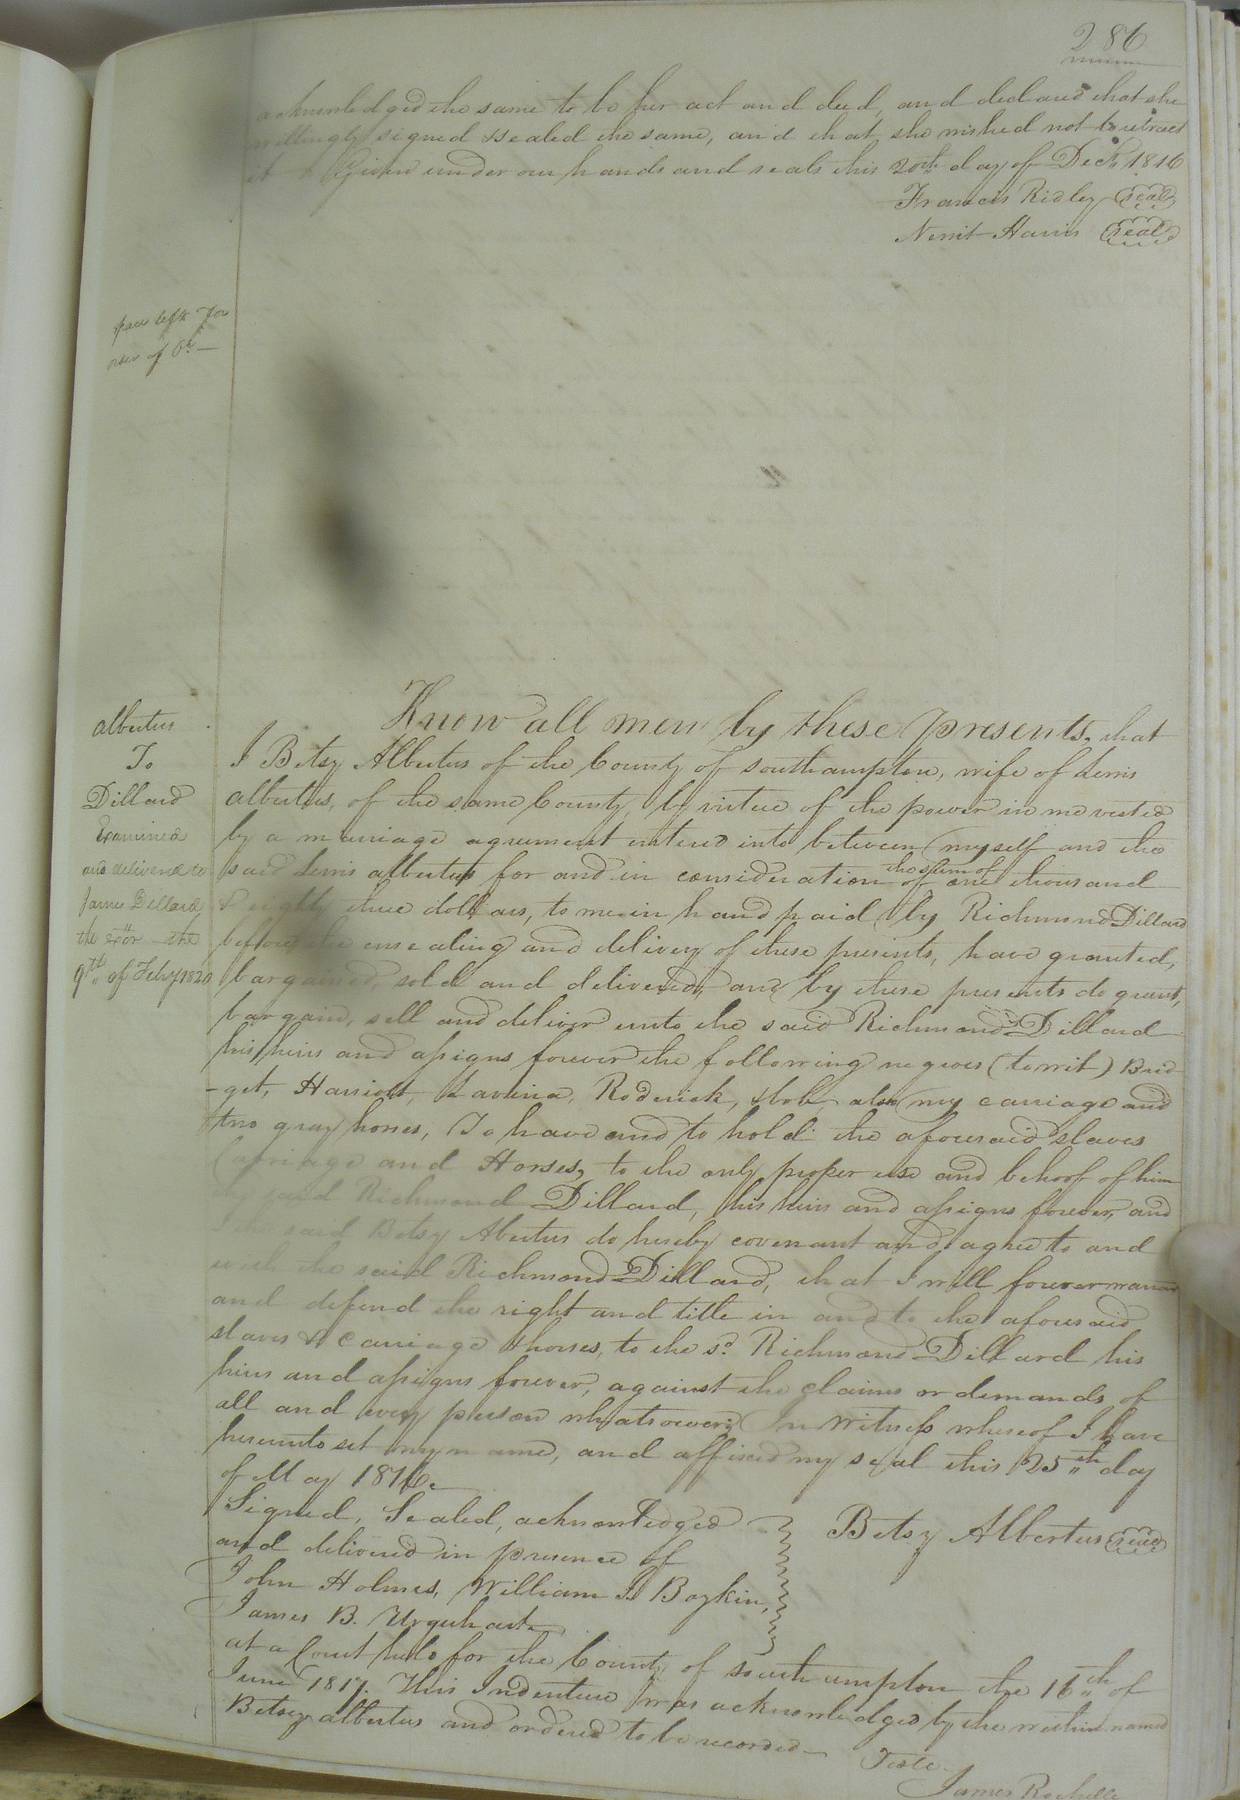 286
acknowledged the same to be her act and deed, and declared that she
willingly signed & sealed the same, and that she wished not to retract
it Given under our hands and seals this 20th day of Decr. 1816
Francis Ridley (seal)
Harris (seal)
space left for
of Ct.—
Know all men by these presents, that
albertus
To
Dillard
Examined
and delivered to
James Dillard
the exor the
9th of Feby 1820
I Betsy Albertus of the County of Southampton, wife of Lewis
albertus, of the same County, by virtue of the power in me vested
by a marriage agreement entered into between myself and the
said Lewis albertus for and in consideration of the sum of one thousand
& eighty three dollars, to me in hand paid by Richmond Dillard
before the ensealing and delivery of these presents, have granted,
bargained, sold and delivered, and by these presents do grant,
bargain, sell and deliver unto the said Richmond Dillard
his heirs and assigns forever the following negroes (to wit) Brid
-get, Harriott, Lavinia, Roderick, & also my carriage and
two gray horses, To have and to hold the aforesaid slaves
Carriage and Horses, to the only proper use and behoof of him
said Richmond Dillard, his heirs and assigns forever, and
I the said Betsy Abertus do hereby covenant and agree to and
with the said Richmond Dillard, that I will forever warrant
and defend the right and title in and to the aforesaid
slaves & carriage & horses, to the sd. Richmond Dillard his
heirs and assigns forever, against the claims or demands of
all and every person whatsoever; In Witness whereof I have
hereunto set my name, and affixed my seal this 25th day
of May 1816.
Signed, Sealed, acknowledged
and delivered in presence of
Betsy Albertus (seal)
John Holmes, William Boykin,
James B. Urquhart
at a Court held for the County of Southampton the 16th of
June 1817. This Indenture was acknowledged by the within named
Betsey albertus and ordered to be recorded—
Teste.
James Rochelle